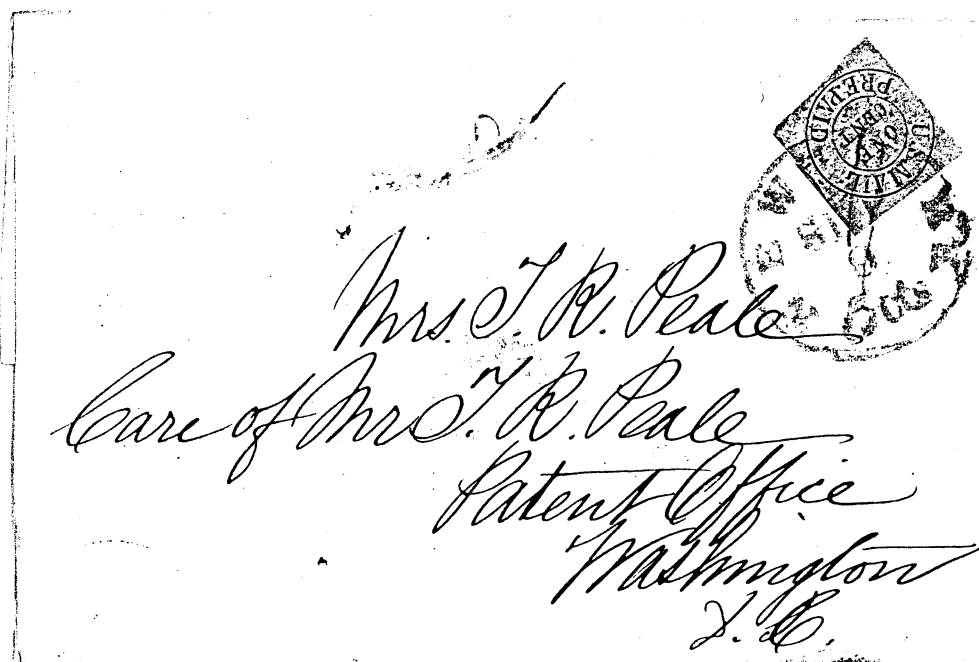 U.S. MAIL
PREPAID
ONE
CENT
NEW
Mrs. T. R. Peale
Care of Mr T. R. Peale
Patent Office
Washington
D. C.